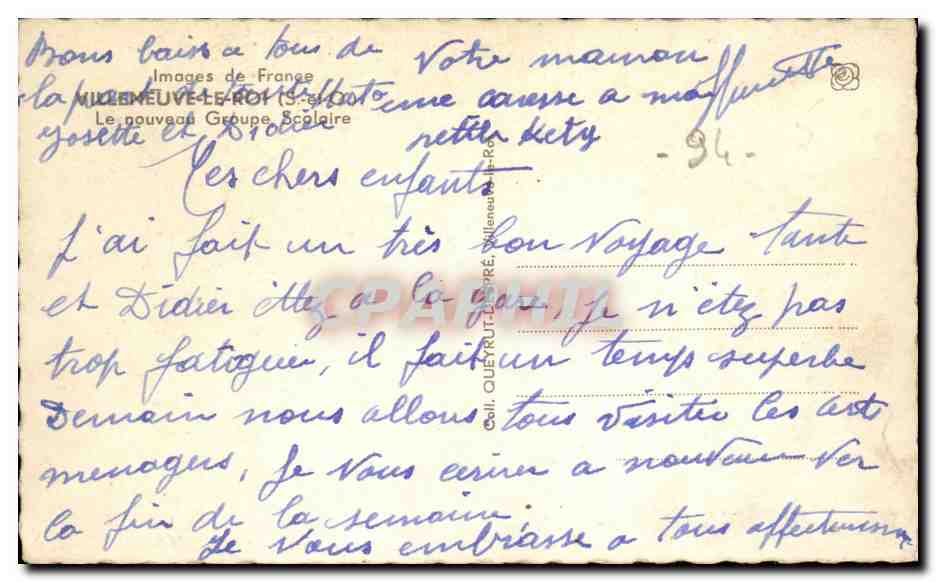 Bons baiss a tous de
la part de
Josette et Didier
Votre maman
une caresse a ma
petite Kety
Images de France
VILLENEUVE-LE-ROI (S.-et-O.)
Le nouveau Groupe Scolaire
- 94 -
Mes chers enfants
J'ai fait un très bon voyage tante
et Didier ittez a la gare, je n'étez pas
trop fatoguer, il fait un temps superbe
Demain nous allons tous visiter les arts
menagers, Je vous ecrirer a nouveau ver
la fin de la semaine.
Je vous embrasse a tous
Coll. QUEYRUT-DESPRÉ, Villeneuve-le-Roi
CPAPHIL